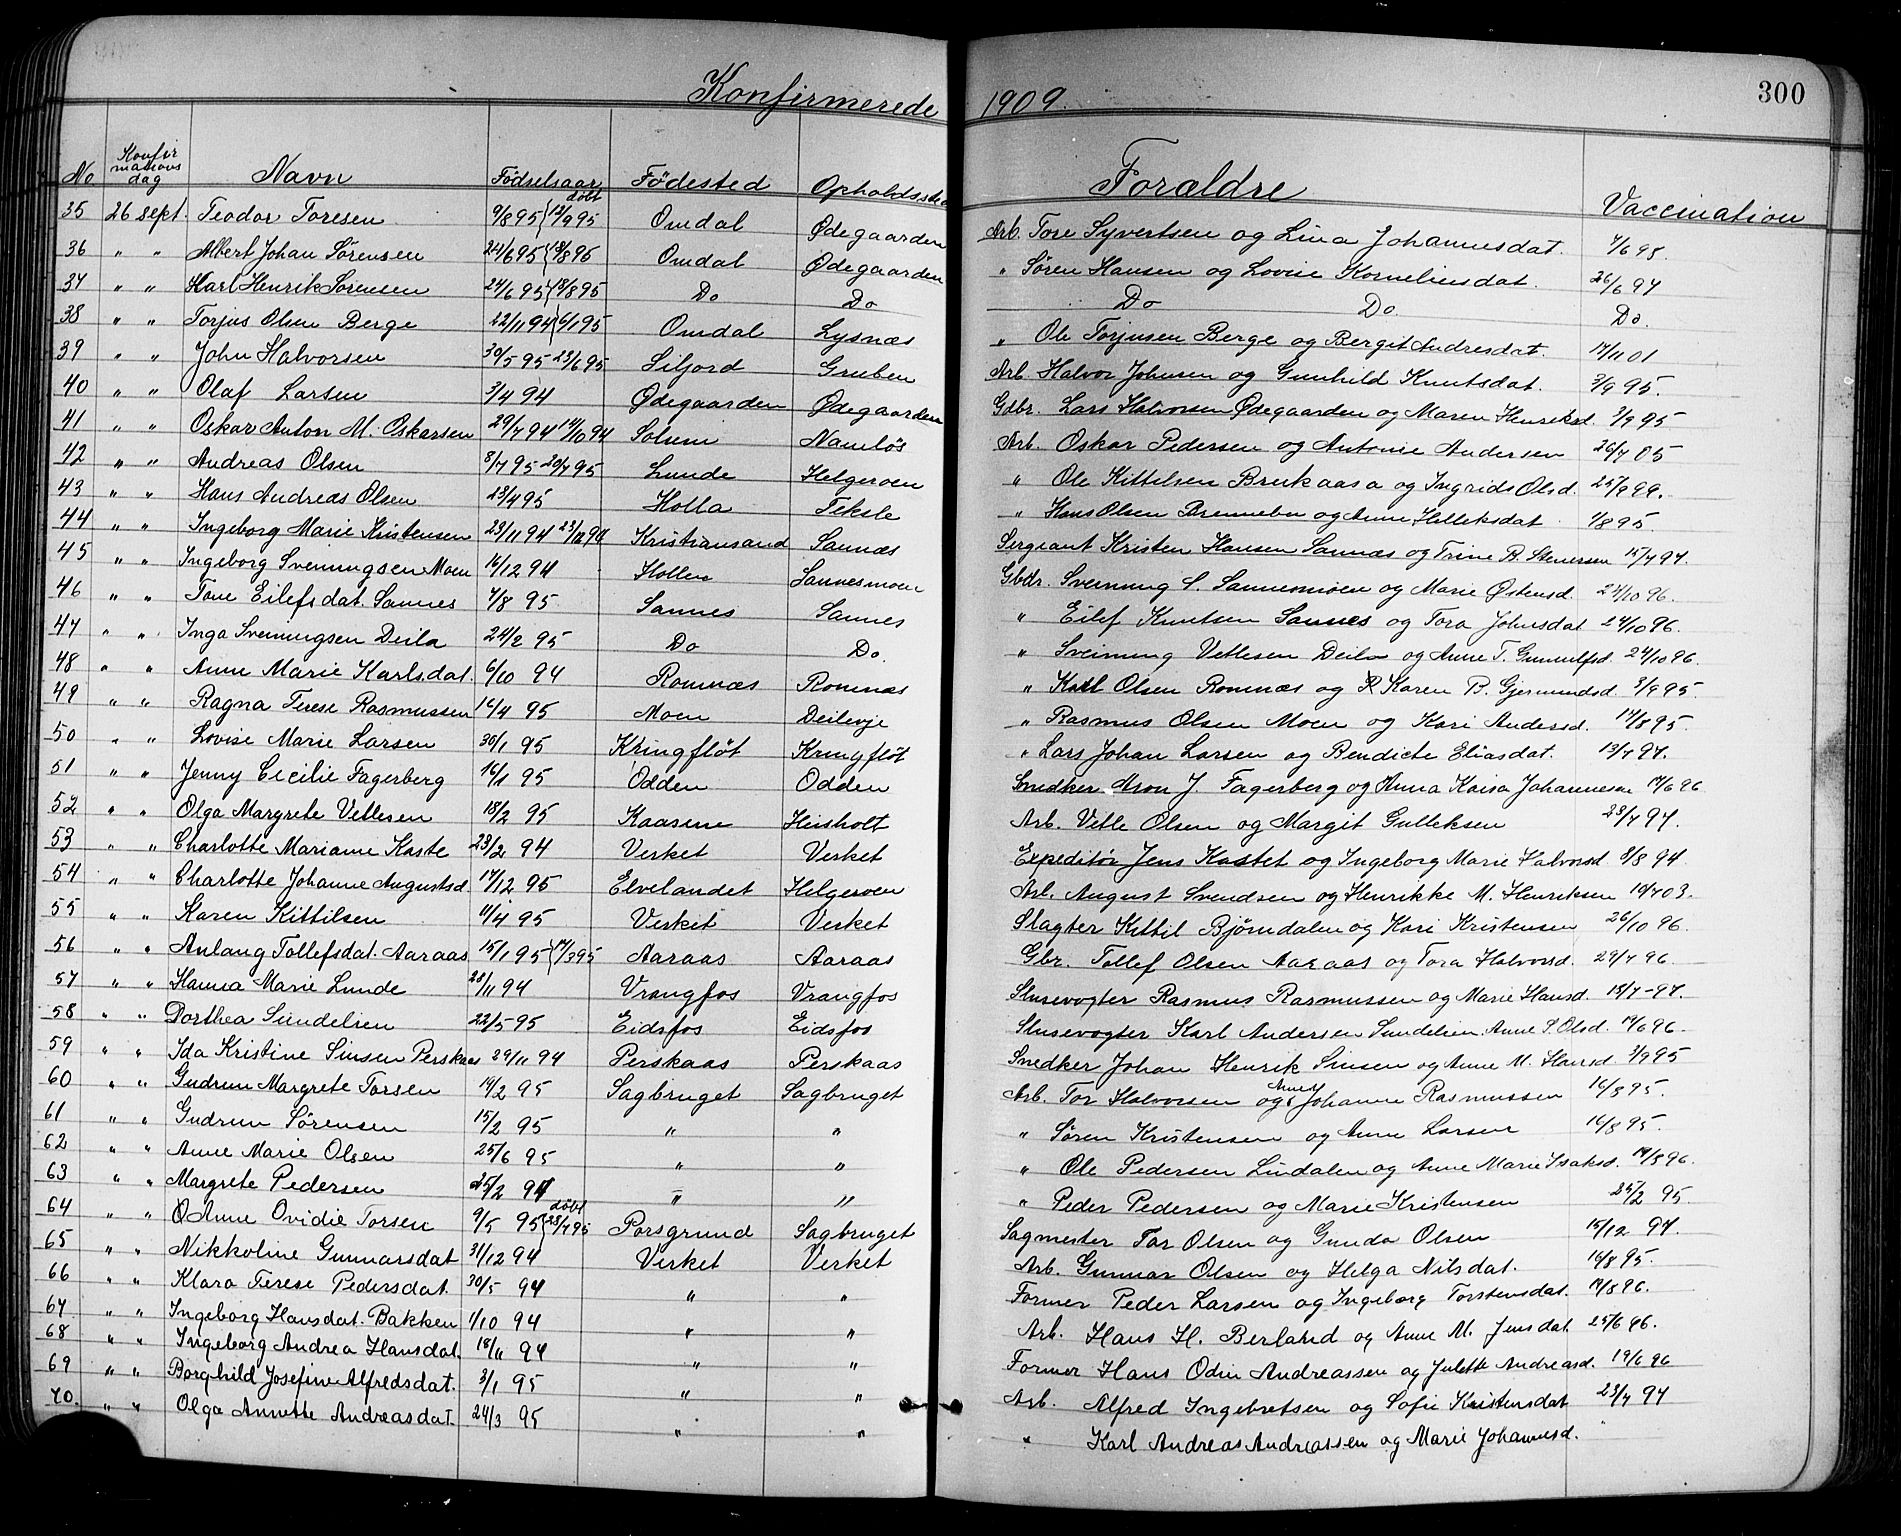 Konfirmerede 1909.
300
No Konfirmations dag Navn Fødselsaar døbt Fødested Opholdssted Forældre Vaccination
35 26 sept. Teodor Toresen 9/8 95 { 12/9 95 Omdal Ødegaarden Arb. Tore Syvertsen og Lina Johannesdat. 4/6 98
36 " " Albert Johan Sørensen 24/6 95 { 18/8 95 Omdal Ødegaarden " Søren Hansen og Lovise Korneliusdat. 26/6 97
37 " " Karl Henrik Sørensen 24/6 95 { 18/8 95 Do Do Do Do Do.
38 " " Torjus Olsen Berge 22/11 94 { 6/1 95 Omdal Lysnæs " Ole Torjusen Berge og Bergit Andresdat. 14/11 01
39 " " John Halvorsen 30/5 95 23/6 95 Siljord Gruben Arb. Halvor Johnsen og Gunhild Knutsdat. 3/9 95.
40 " " Olaf Larsen 3/4 94 Ødegaarden Ødegaarden Gdbr. Lars Halvorsen Ødegaarden og Maren Henriksd. 3/9 95
41 " " Oskar Anton M. Oskarsen 29/7 94 14/10 94 Solum Namløs Arb. Oskar Pedersen og Antonie Andersen 26/7 05
42 " " Andreas Olsen 8/7 95 20/7 95 Lunde Helgeroen " Ole Kittelsen Brukaasa og Ingrids Olsd. 25/9 99.
43 " " Hans Andreas Olsen 23/4 95 Holla Teksle " Hans Olsen Brennebu og Anne Helleksdat 1/8 95.
44 " " Ingeborg Marie Kristensen 23/11 94 23/12 94 Kristiansand Sannæs Sergeant Kristen Hansen Sannæs og Trine B. Stenersen 15/7 97.
45 " " Ingeborg Sveinungsen Moen 16/12 94 Hollen Sannesmoen Gbdr. Sveinung S. Sannesmoen og Marie Østensd. 24/10 96.
46 " " Tone Eilefsdat. Sannes 7/8 95 Sannes Sannes " Eilef Knutsen Sannes og Tora Johnsdat 24/10 96.
47 " " Inga Sveinungsen Deila 24/2 95 Do Do. " Sveinung Vetlesen Deila og Anne T. Gunnulfsd. 24/10 96.
48 " " Anne Marie Karlsdat. 6/10 94 Romnæs Romnæs " Karl Olsen Romnæs og Karen B. Gjermundsd. 3/9 95.
49 " " Ragna Terese Rasmussen 14/4 95 Moen Deilevje " Rasmus Olsen Moen og Kari Andersd. 14/8 95.
50 " " Lovise Marie Larsen 30/1 95 Kringfløt Kringfløt " Lars Johan Larsen og Bendicte Eliasdat. 13/7 97.
51 " " Jenny Cecilie Fagerberg 16/1 95 Odden Odden Snedker Aron J. Fagerberg og Anna Kaisa Johannesen 14/6 96
52 " " Olga Margrete Vetlesen 18/2 95 Kaasene Heisholt Arb. Vetle Olsen og Margit Gulleksen 23/7 97.
53 " " Charlotte Marianne Kaste 23/2 94 Verket Verket Expeditør Jens Kastet og Ingeborg Marie Halvorsd 8/8 94.
54 " " Charlotte Johanne Augustsd 17/12 95 Elvelandet Helgeroen Arb. August Svendsen og Henrikke M. Henriksen 10/7 03.
55 " " Karen Kittilsen 11/4 95 Verket Verket Slagter Kittil Bjørndalen og Kari Kristensen 26/10 96.
56 " " Anlaug Tollefsdat. Aaraas 15/1 95 { 17/3 95 Aaraas Aaraas Gbr. Tollef Olsen Aaraas og Tora Halvorsd. 29/7 96.
57 " " Hanna Marie Lunde 28/11 94 Vrangfos Vrangfos Slusevogter Rasmus Rasmussen og Marie Hansd. 15/7-97.
58 " " Dorthea Sundelien 22/5-95 Eidsfos Eidsfos Slusevogter Karl Andersen Sundelien. Anne S. Olsd. 19/6 96-
59 " " Ida Kristine Sinsen Perskaas 29/11 94 Perskaas Perskaas Snedker Johan Henrik Sinsen og Anne M. Hansd 3/9 95
60 " " Gudrun Margrete Torsen 19/2 95 Sagbruget Sagbruget Arb. Tor Halvorsen og Anne Johanne Rasmussen 16/8 95.
61 " " Gudrun Sørensen 15/2 95 " " " Søren Kristensen og Anne Larsen 16/8 95.
62 " " Anne Marie Olsen 25/6 95 " " " Ole Pedersen Lindalen og Anne Marie Isaksd. 14/8 96.
63 " " Margrete Pedersen 25/2 94 " " " Peder Pedersen og Marie Kristensen 25/2 95
64 " " Anne Ovidie Torsen 9/5 95 { døbt 28/7 95 Porsgrund Sagbruget Sagmester Tor Olsen og Gunda Olsen 15/12 97.
65 " " Nikkoline Gunnarsdat 31/12 94 Verket Verket Arb. Gunnar Olsen og Helga Nilsdat. 16/8 95.
66 " " Klara Terese Pedersdat. 30/5 94 " " Former Peder Larsen og Ingeborg Torstensdat. 14/8 96.
67 " " Ingeborg Hansdat. Bakken 1/10 94 " " Arb. Hans H. Berland og Anne M. Jensdat 25/6 96.
68 " " Ingeborg Andrea Hansdat. 18/11 94 " " Former Hans Odin Andreassen og Julette Andreasd. 19/6 96
69 " " Borghild Josefine Alfredsdat. 3/1 95 " " Arb. Alfred Ingebretsen og Sofie Kristensdat 23/7 97
70. " " Olga Annette Andreasdat. 24/3 95 " " " Karl Andreas Andreassen og Marie Johannesd.